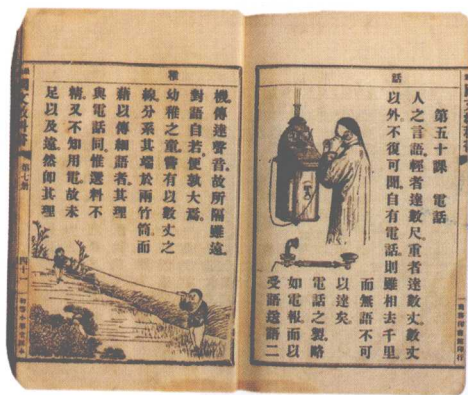 話
第五十課 電話
人之言語,輕者達數尺,重者達數丈,數丈
以外,不復可聞.自有電話,則雖相去千里.
而無語不可
以達矣.
電話之製,略
如電報,而以
受語送語二
商務印書館印行
雅
機,傳達聲音.故所隔雖遠.
對語自若.便孰大焉.
幼稚之童,嘗有以數丈之
線,分系其端於兩竹筒,而
藉以傳細語者.其理
與電話同.惟選料不
精,又不知用電,故未
足以及遠.然卽其理
國文教科書
第七册
四十一